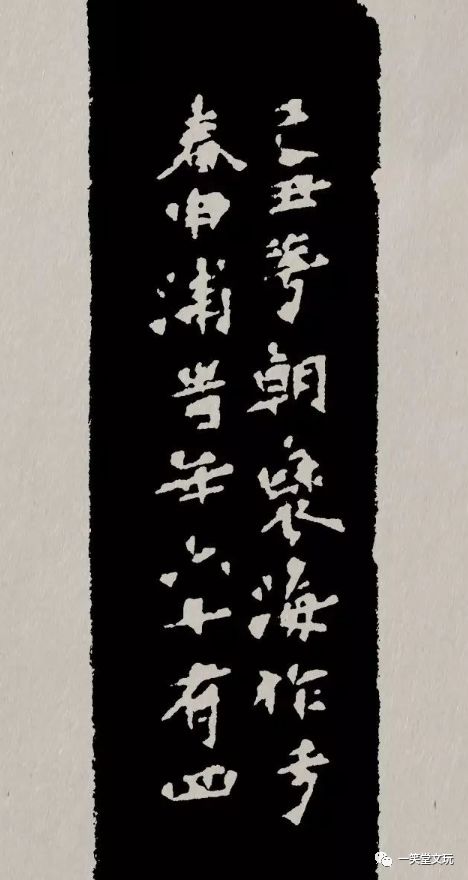 己丑荂朝褱海作于
春申浦旹年六十有四
一笑堂文玩